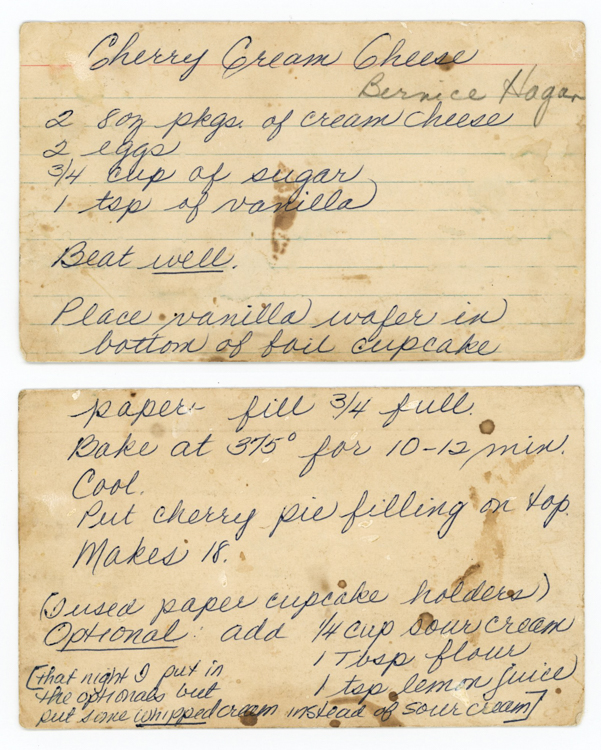 Cherry Cream Cheese
Bernice Hagar
2 8oz pkgs. of cream cheese
2 eggs
3/4 cup of sugar
1 tsp of vanilla
Beat well.
Place vanilla wafer in
bottom of foil cupcake
paper- fill 3/4 full.
Bake at 375° for 10-12 min.
Cool.
Put cherry pie filling on top.
Makes 18.
(I used paper cupcake holders)
Optional: add 1/4 cup sour cream
1 Tbsp flour
1 tsp lemon juice
[that night I put in
the optionals but
put some whipped cream instead of sour cream]